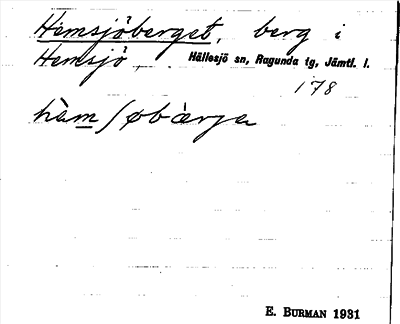 Hemsjöberget, berg i
Hemsjö, Hällesjö sn, Ragunda tg, Jämtl. l.
178
hèm ʃøbàrjɐ
E. BURMAN 1931